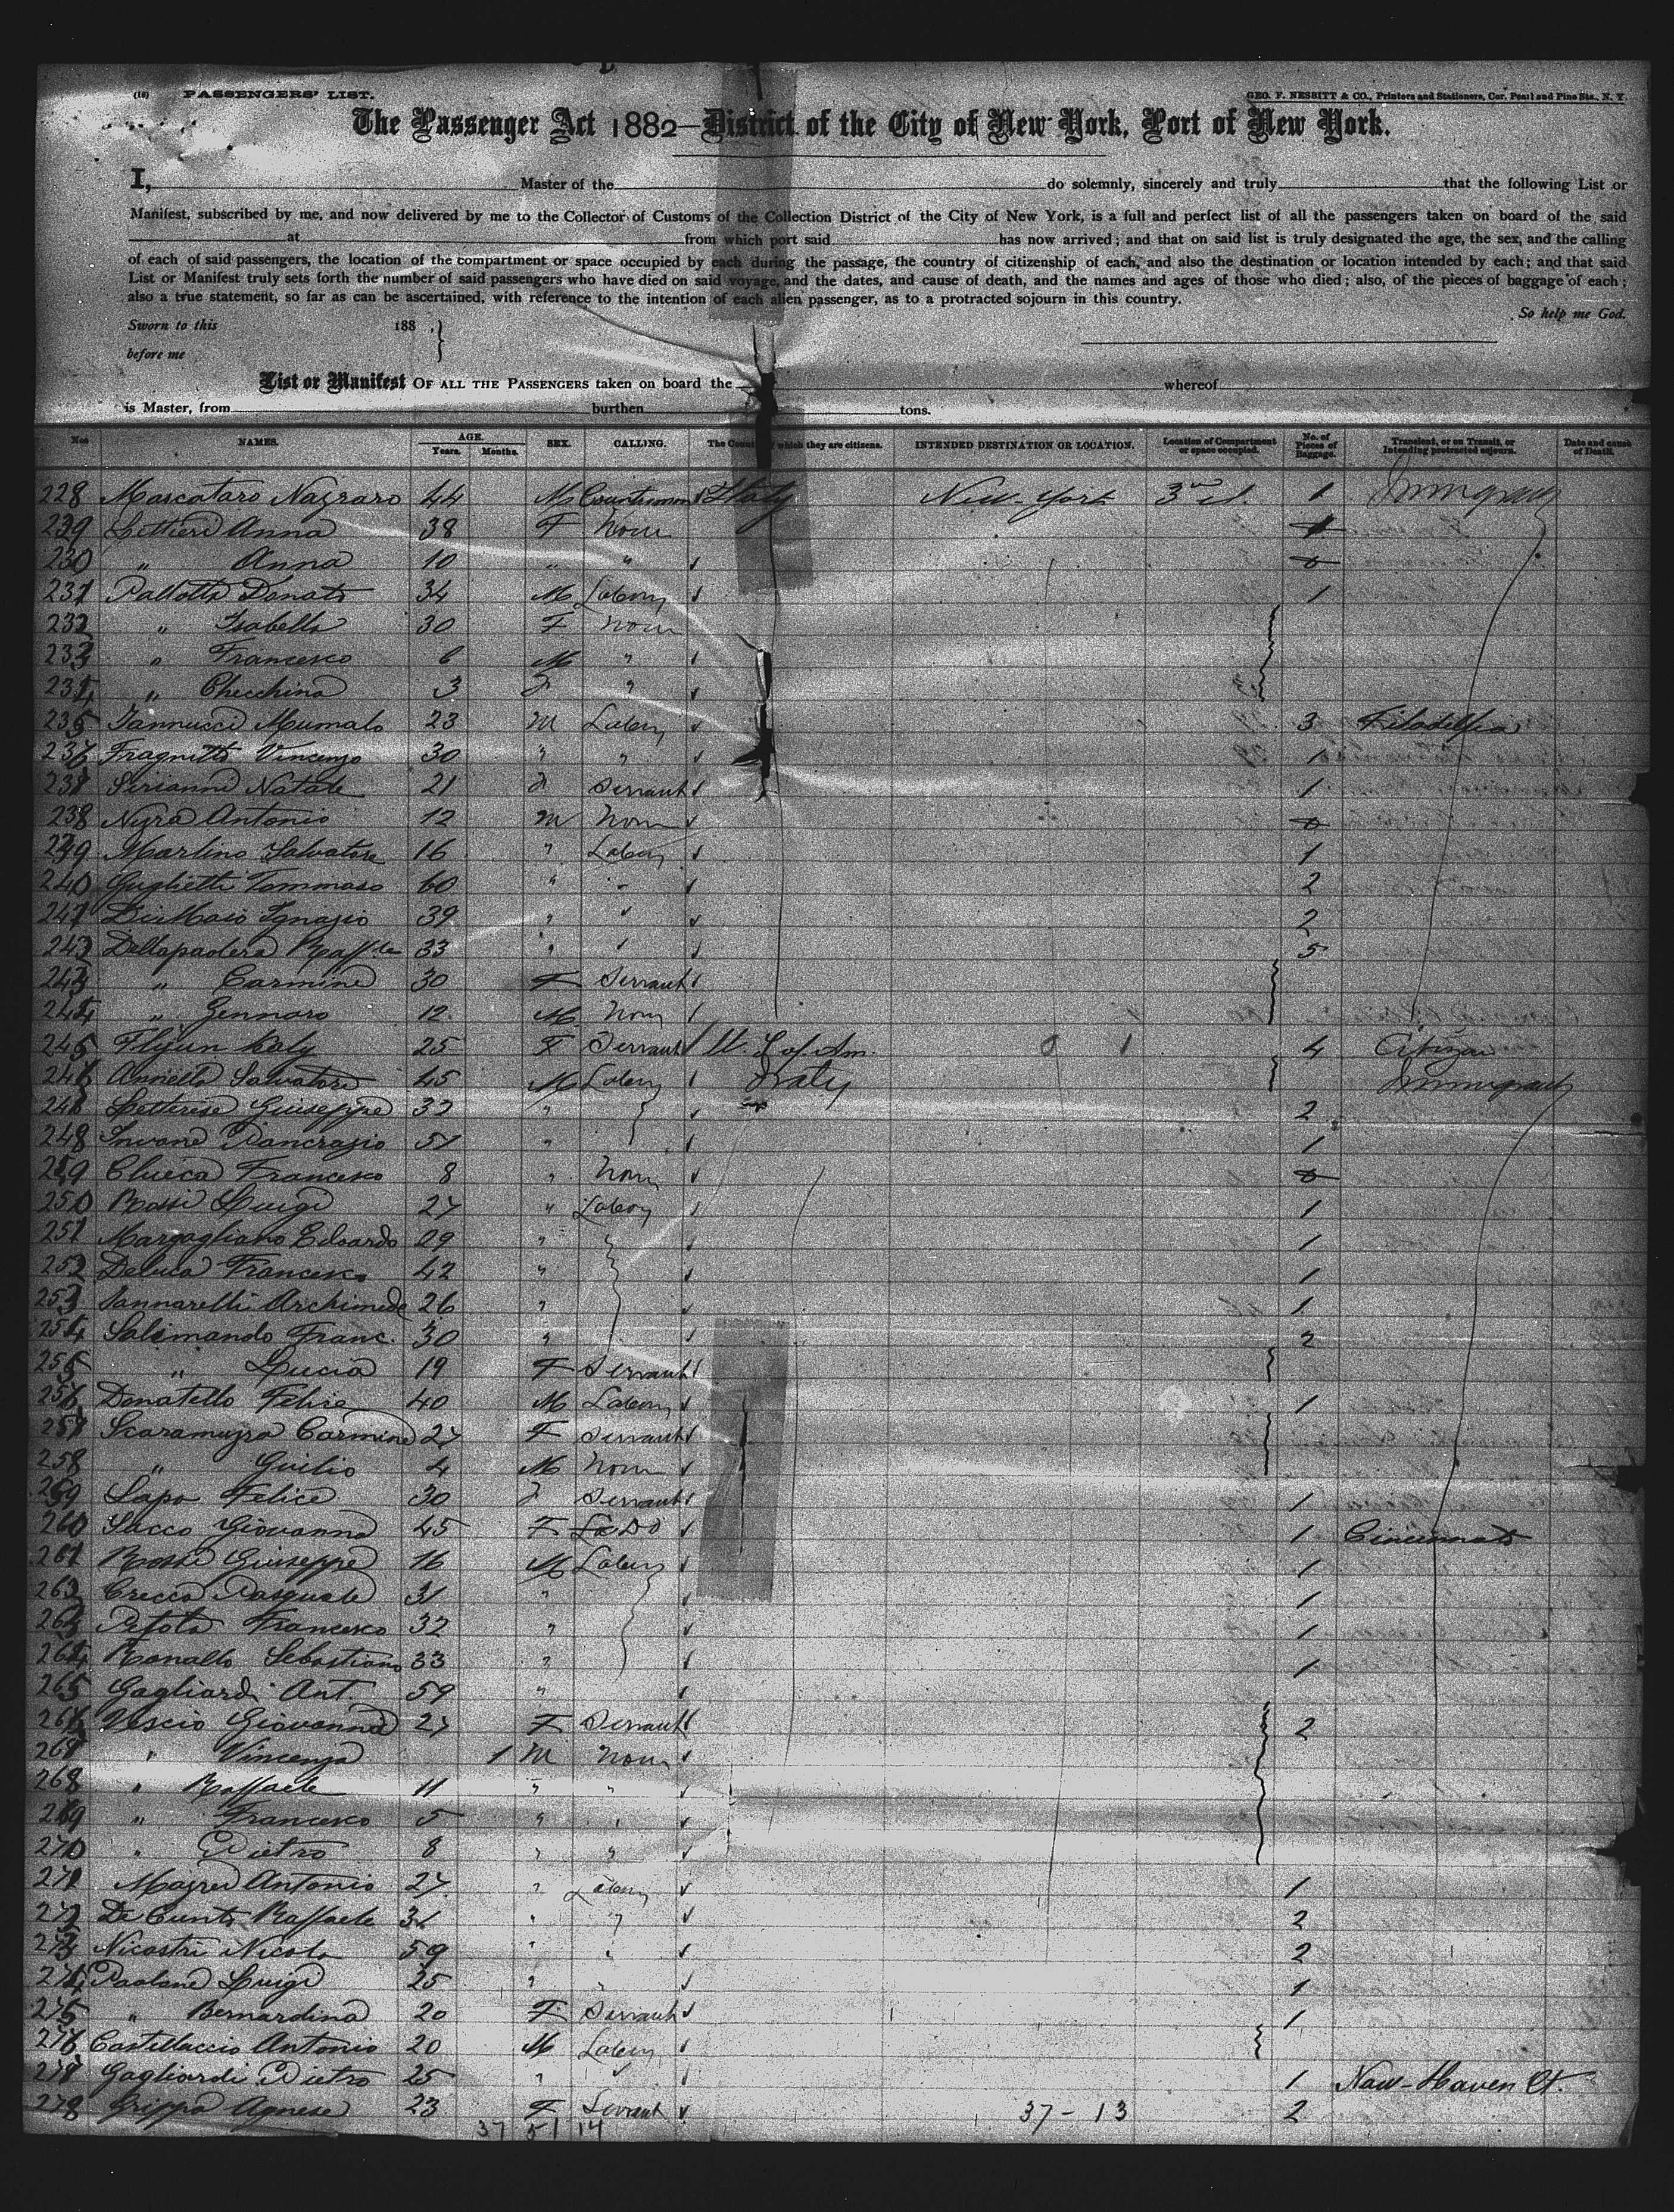 (16) PASSENGERS' LIST.
GEO. F. NESBITT & CO., Printers and Stationers, Cor. Pearl and Pine Sts., N. Y.
The Passenger Act 1882—District of the City of New York, Port of New York.
I, Master of the do solemnly, sincerely and truly that the following List or
Manifest, subscribed by me, and now delivered by me to the Collector of Customs of the Collection District of the City of New York, is a full and perfect list of all the passengers taken on board of the said
at from which port said has now arrived; and that on said list is truly designated the age, the sex, and the calling
of each of said passengers, the location of the compartment or space occupied by each during the passage, the country of citizenship of each, and also the destination or location intended by each; and that said
List or Manifest truly sets forth the number of said passengers who have died on said voyage, and the dates, and cause of death, and the names and ages of those who died; also, of the pieces of baggage of each;
also a true statement, so far as can be ascertained, with reference to the intention of each alien passenger, as to a protracted sojourn in this country.
So help me God.
Sworn to this 188 ,
before me
List or Manifest OF ALL THE PASSENGERS taken on board the whereof
is Master, from burthen tons.
Nos NAMES. AGE. Years. Months. SEX. CALLING. The Country of which they are citizens. INTENDED DESTINATION OR LOCATION. Location of Compartment or space occupied. No. of Pieces of Baggage. Transient, or on Transit, or Intending protracted sojourn. Date and cause of Death.
228 Mascataro Nazraro 44 M Countrman Italy New-York 3rd cl. 1 Immigrant
229 Lettieri Anna 38 F None 1
230 " Anna 10 " " 0
231 Pallotta Donato 34 M Labory 1
232 " Isabella 30 F None
233 " Francesco 6 M "
234 " Checchina 3 F "
235 Iannucci 23 M Labory 3 Filadelfia
236 Fragnitto Vincenzo 30 " " 1
237 Sirianni Natale 21 F Servant 1
238 Nyra Antonio 12 M None 0
239 Martino Salvatore 16 " Labory 1
240 Guglietti Tommaso 60 " " 2
241 DiMaio Ignazio 39 " " 2
242 Dellapaolera Raffle 33 " " 5
243 " Carmine 30 F Servant
244 " Gennaro 12 M None
245 Flynn Katy 25 F Servant U. S. of Am. 0 1 4 Citizen
246 Aniello Salvatore 45 M Labory Italy Immigrant
247 Letterese Giuseppe 32 " 2
248 Pancrazio 51 " 1
249 Chieco Francesco 8 " None 0
250 Rossi Luigi 27 " Labory 1
251 Margagliano Edoardo 29 " 1
252 Deluca Francesco 42 " 1
253 Iannarelli Archimede 26 " 1
254 Salimando Franc. 30 " 2
255 " Lucia 19 F Servant
256 Donatello Felice 40 M Labory 1
257 Scaramuzza Carmine 27 F Servant
258 " Guilio 4 M None
259 Lapo Felice 30 F Servant 1
260 Sacco Giovanna 45 F 1 Cincinnati
261 Rossi Giuseppe 16 M Labory 1
262 Crecco Pasquale 31 " 1
263 Francesco 32 " 1
264 Ronallo Sebastiano 33 " 1
265 Gagliardi Ant. 59 "
266 Vescio Giovanna 27 F Servant 2
267 " Vincenza 1 M None
268 " Raffaele 11 " "
269 " Francesco 5 " "
270 " Pietro 8 " "
271 Antonio 27 " Labory 1
272 De Cunto Raffaele 31 " " 2
273 Nicastri Nicola 59 " " 2
274 Paolane Luigi 25 " " 1
275 " Bernardina 20 F Servant 1
276 Castelluccio Antonio 20 M Labory
277 Gagliardi Pietro 25 " " 1 New-Haven Ct.
278 Grippa Agnese 23 F Servant 37-13 2
37 51 14